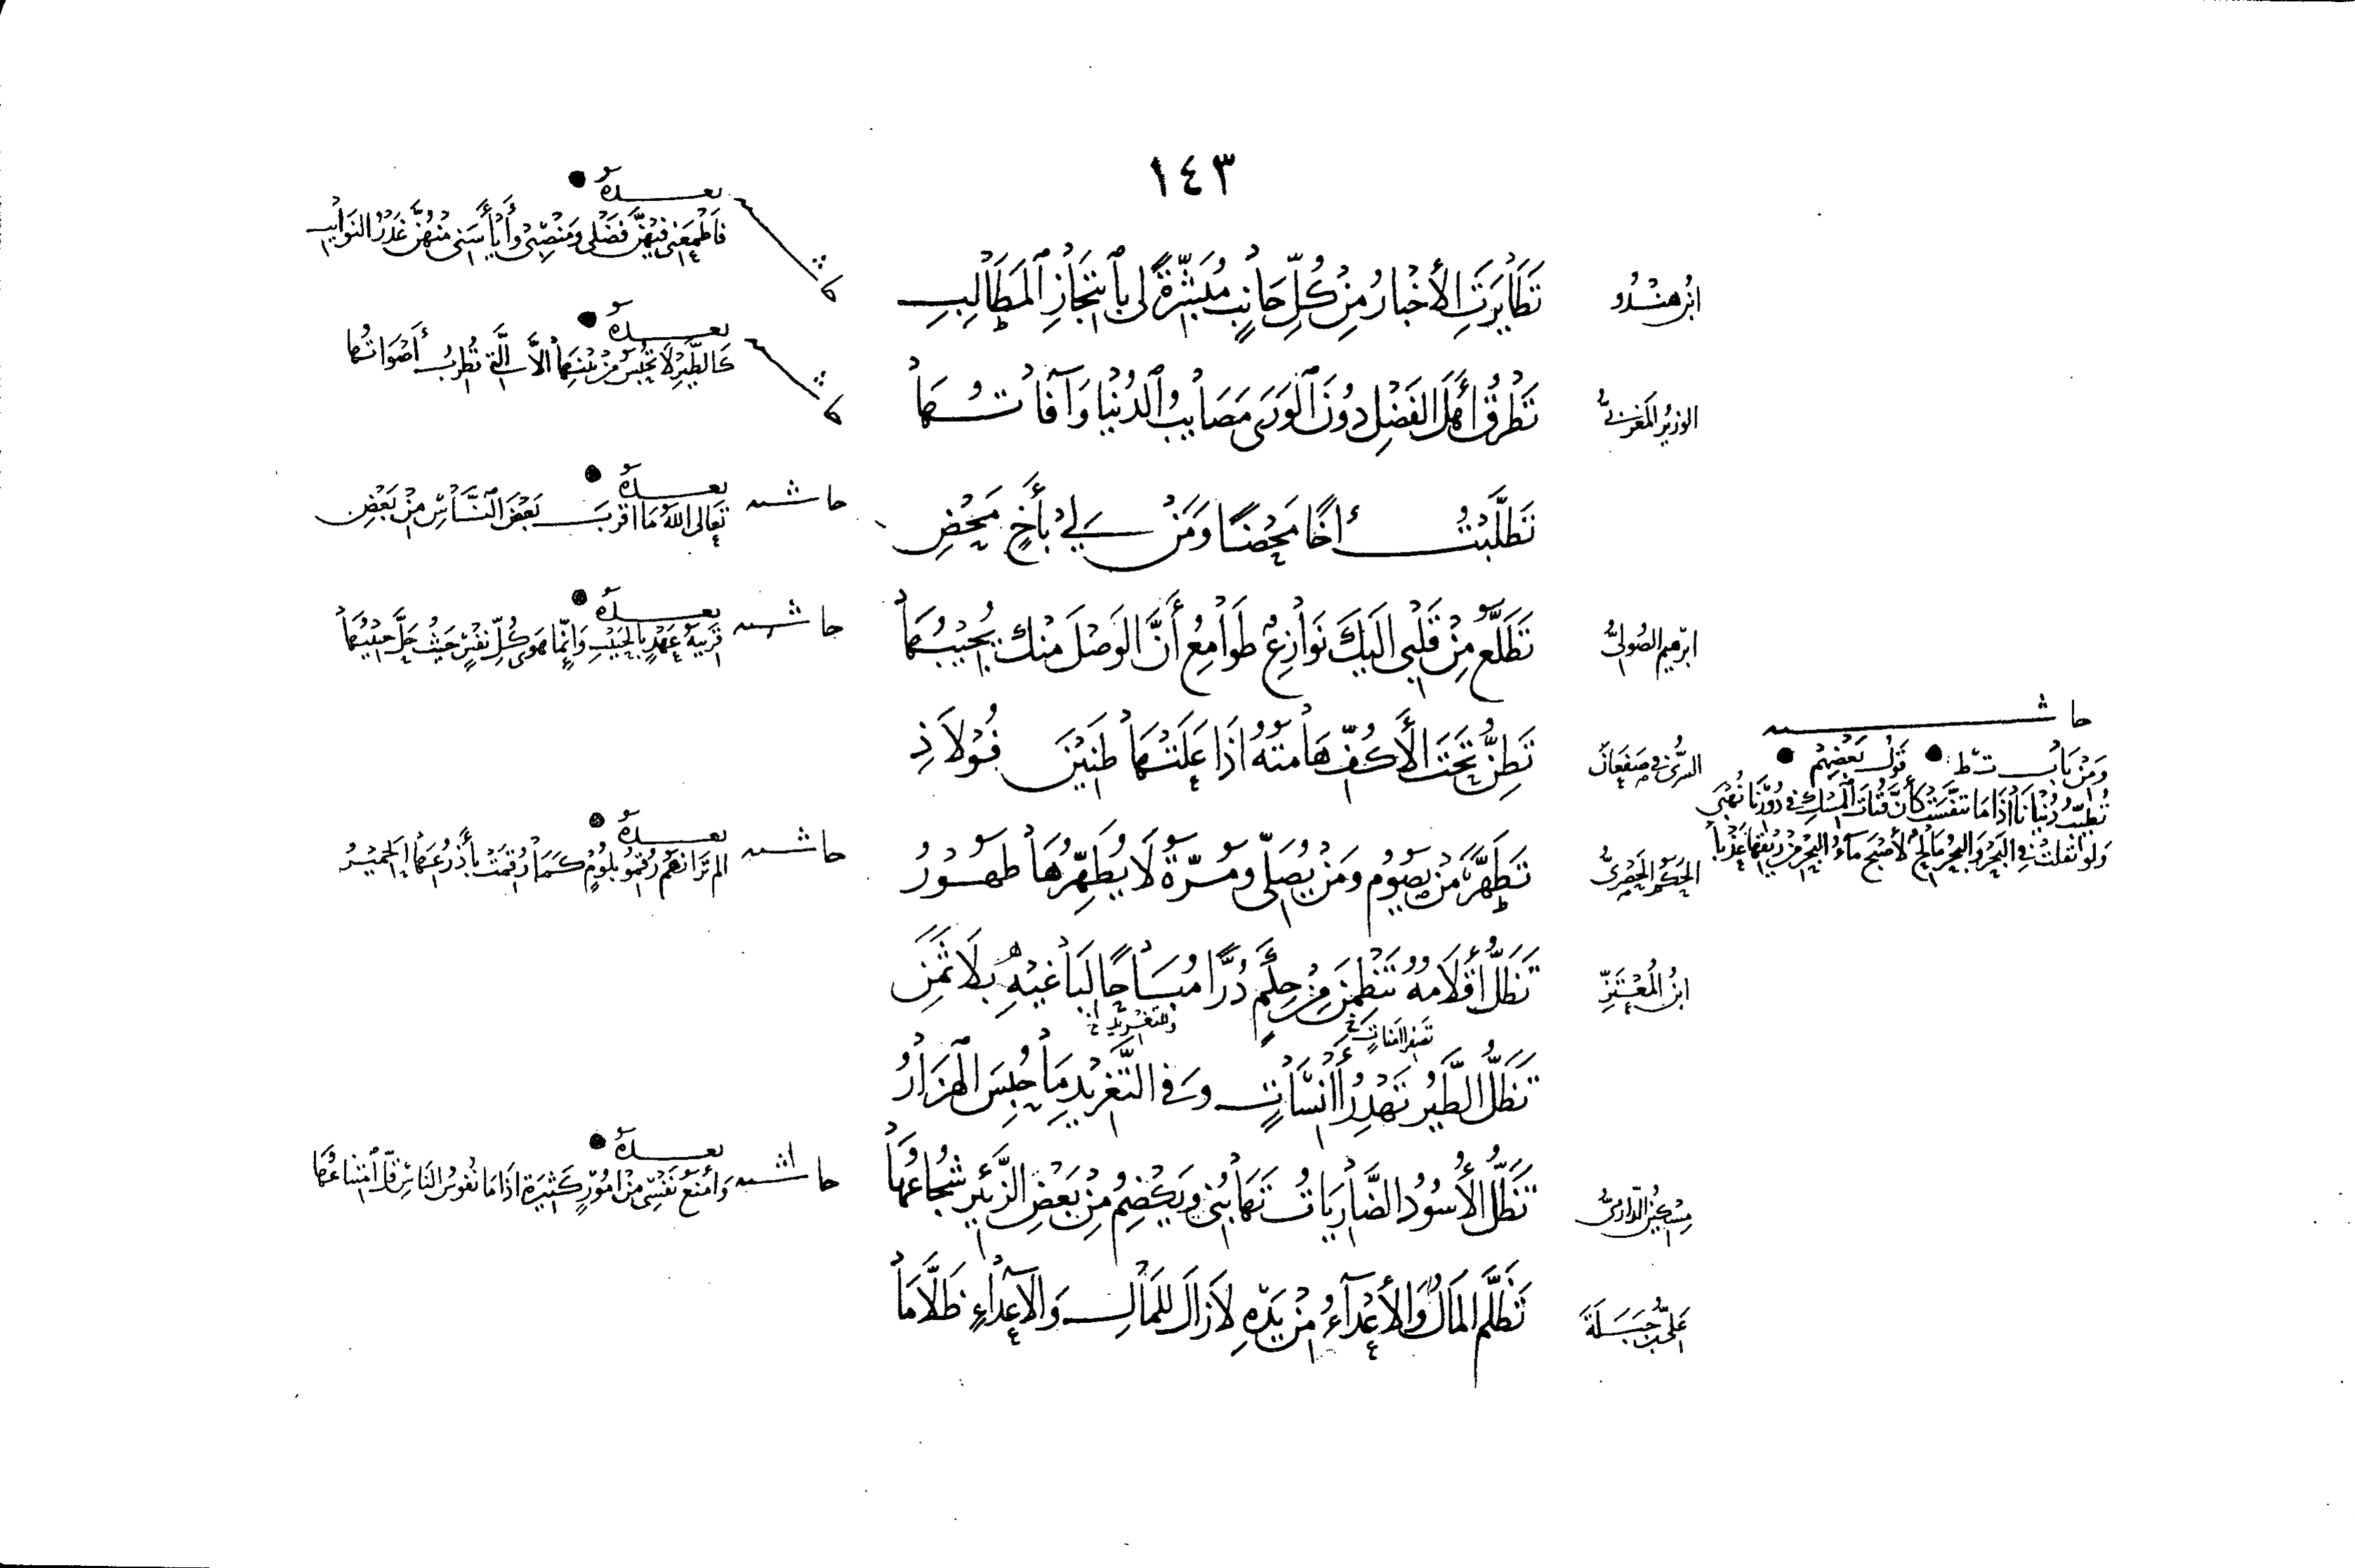 ١٤٣
ابن هندو
تَطَايَرَتِ الأَخْبَارُ مِنْ كُلِّ جَانِبٍ مُبَشِّرَةً لِي بِانْتِجَازِ الْمَطَالِبِ
بعده
فَأَطْمَعَنِي فِيهِنَّ فَضْلِي وَمَنْصِبِي وَأَيْأَسَنِي مِنْهُنَّ غَدْرُ النَوَائِبِ
الوزير المغربي
تَطْرُقُ أَهْلَ الفَضْلِ دُونَ الْوَرَى مَصَايِبُ الدُنْيَا وَآفَاتُهَا
بعده
كَالطَّيْرِ لَا يُحْبَسُ مِنْ بَيْنِهَا الَّا الَّتِي تُطْرِبُ أَصْوَاتُهَا
تَطَلَّبْتُ أَخًا مَحْضًا وَمَنْ لِي بِأَخٍ مَحْضِ
حاشيه
بعده
تَعَالَى اللهُ مَا اقْرَبَ بَعْضَ النَّاسِ مِنْ بَعْضِ
ابرهيم الصولي
تَطَلَّعُ مِنْ قَلْبِي الَيْكَ نَوَازِعُ طَوَامِعُ أَنَّ الوَصْلَ مِنْكَ يُجِيبُهَا
حاشيه
بعده
قَرِيبَةُ عَهْدٍ بِالحَبِيبِ وَإِنَّمَا هَوَى كُلِّ نَفْسٍ حَيْثُ حَلَّ حَبِيبُهَا
السري في صفعان
تَطِنُّ تَحْتَ الأَكُفِّ هَامَتُهُ اذَا عَلَتْهَا طَنِيْنَ فُوْلَاذِ
حاشيه
وَمِنْ بَابِ ت ط قَوْلُ بَعْضِهِمْ
تُطَيِّبُ دُنْيَانَا اذَا مَا تَنَفَّسَتْ كَأَنَّ فُتَاتَ المِسْكِ فِي دُوْرِنَا نُهْبَى
وَلَو تَفَلَتْ فِي البَحْرِ وَالبَحْرُ مَالِحٌ لأَصْبَحَ مَاءُ البَحْرِ مِنْ رِيْقِهَا عَذْبَا
الحكم الخضري
تَطَهَّرَ مَنْ يَصُومُ وَمَنْ يُصَلِّي وَمُرَّةُ لَا يُطَهِّرُهَا طَهُورُ
حاشيه
بعده
الم تَرَ انهم رُقِمُوا بِلُومٍ كَمَا رُقِمَتْ بِأَذْرُعِهَا الحَمِيرُ
ابنُ المُعْتَزِّ
تَظَلُّ أَقْلَامُهُ تَنْظِمْنَ مِنْ حِلْمٍ دُرًّا مُبَاحًا لِبَاغِيْهِ بِلَا ثَمَنِ
تَظَلُّ الطَّيْرُ تَهْدِرُ آنِسَاتٍ وَفِي التَّغْرِيْدِ مَا حُبِسَ الهَزَارُ
مِسْكِينُ الدَّارِمِيُّ
تَظَلُّ الأُسُودُ الضَّارِيَاتُ تَهَابُنِي وَيَكْضِمُ مِنْ بَعْضِ الزَّئِيرِ شُجَاعُهَا
حاشيه
بعده
وَأَمْنَعُ نَفْسِي مِنْ امُوْرٍ كَثِيْرَةٍ اذَا مَا نُفُوسُ النَاسِ قَلَّ امْتِنَاعُهَا
عَلِيُّ بن جَبَلَةَ
تَظَلَّمَ المَالُ وَالأَعْدَاءُ مِنْ يَدِهِ لَا زَالَ لِلمَالِ وَالأَعْدَاءِ ظَلَّامَا